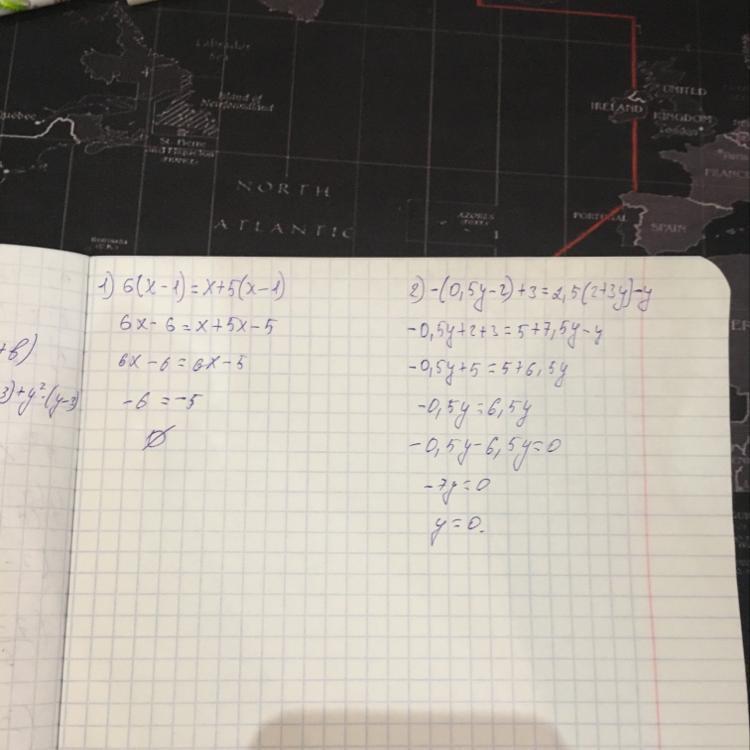 Labrador
Sea
Québec
Island of
Newfoundland
St. Pierre
and Miquelon
NORTH
ATLANTIC
UNITED
IRELAND
KINGDOM
London
FRANCE
AZORES
PORTUGAL
SPAIN
+b)
3)+y²·(y-3)
1) 6(x-1)=x+5(x-1)
6x-6=x+5x-5
6x-6=6x-5
-6=-5
∅
2) -(0,5y-2)+3=2,5(2+3y)-y
-0,5y+2+3=5+7,5y-y
-0,5y+5=5+6,5y
-0,5y=6,5y
-0,5y-6,5y=0
-7y=0
y=0.